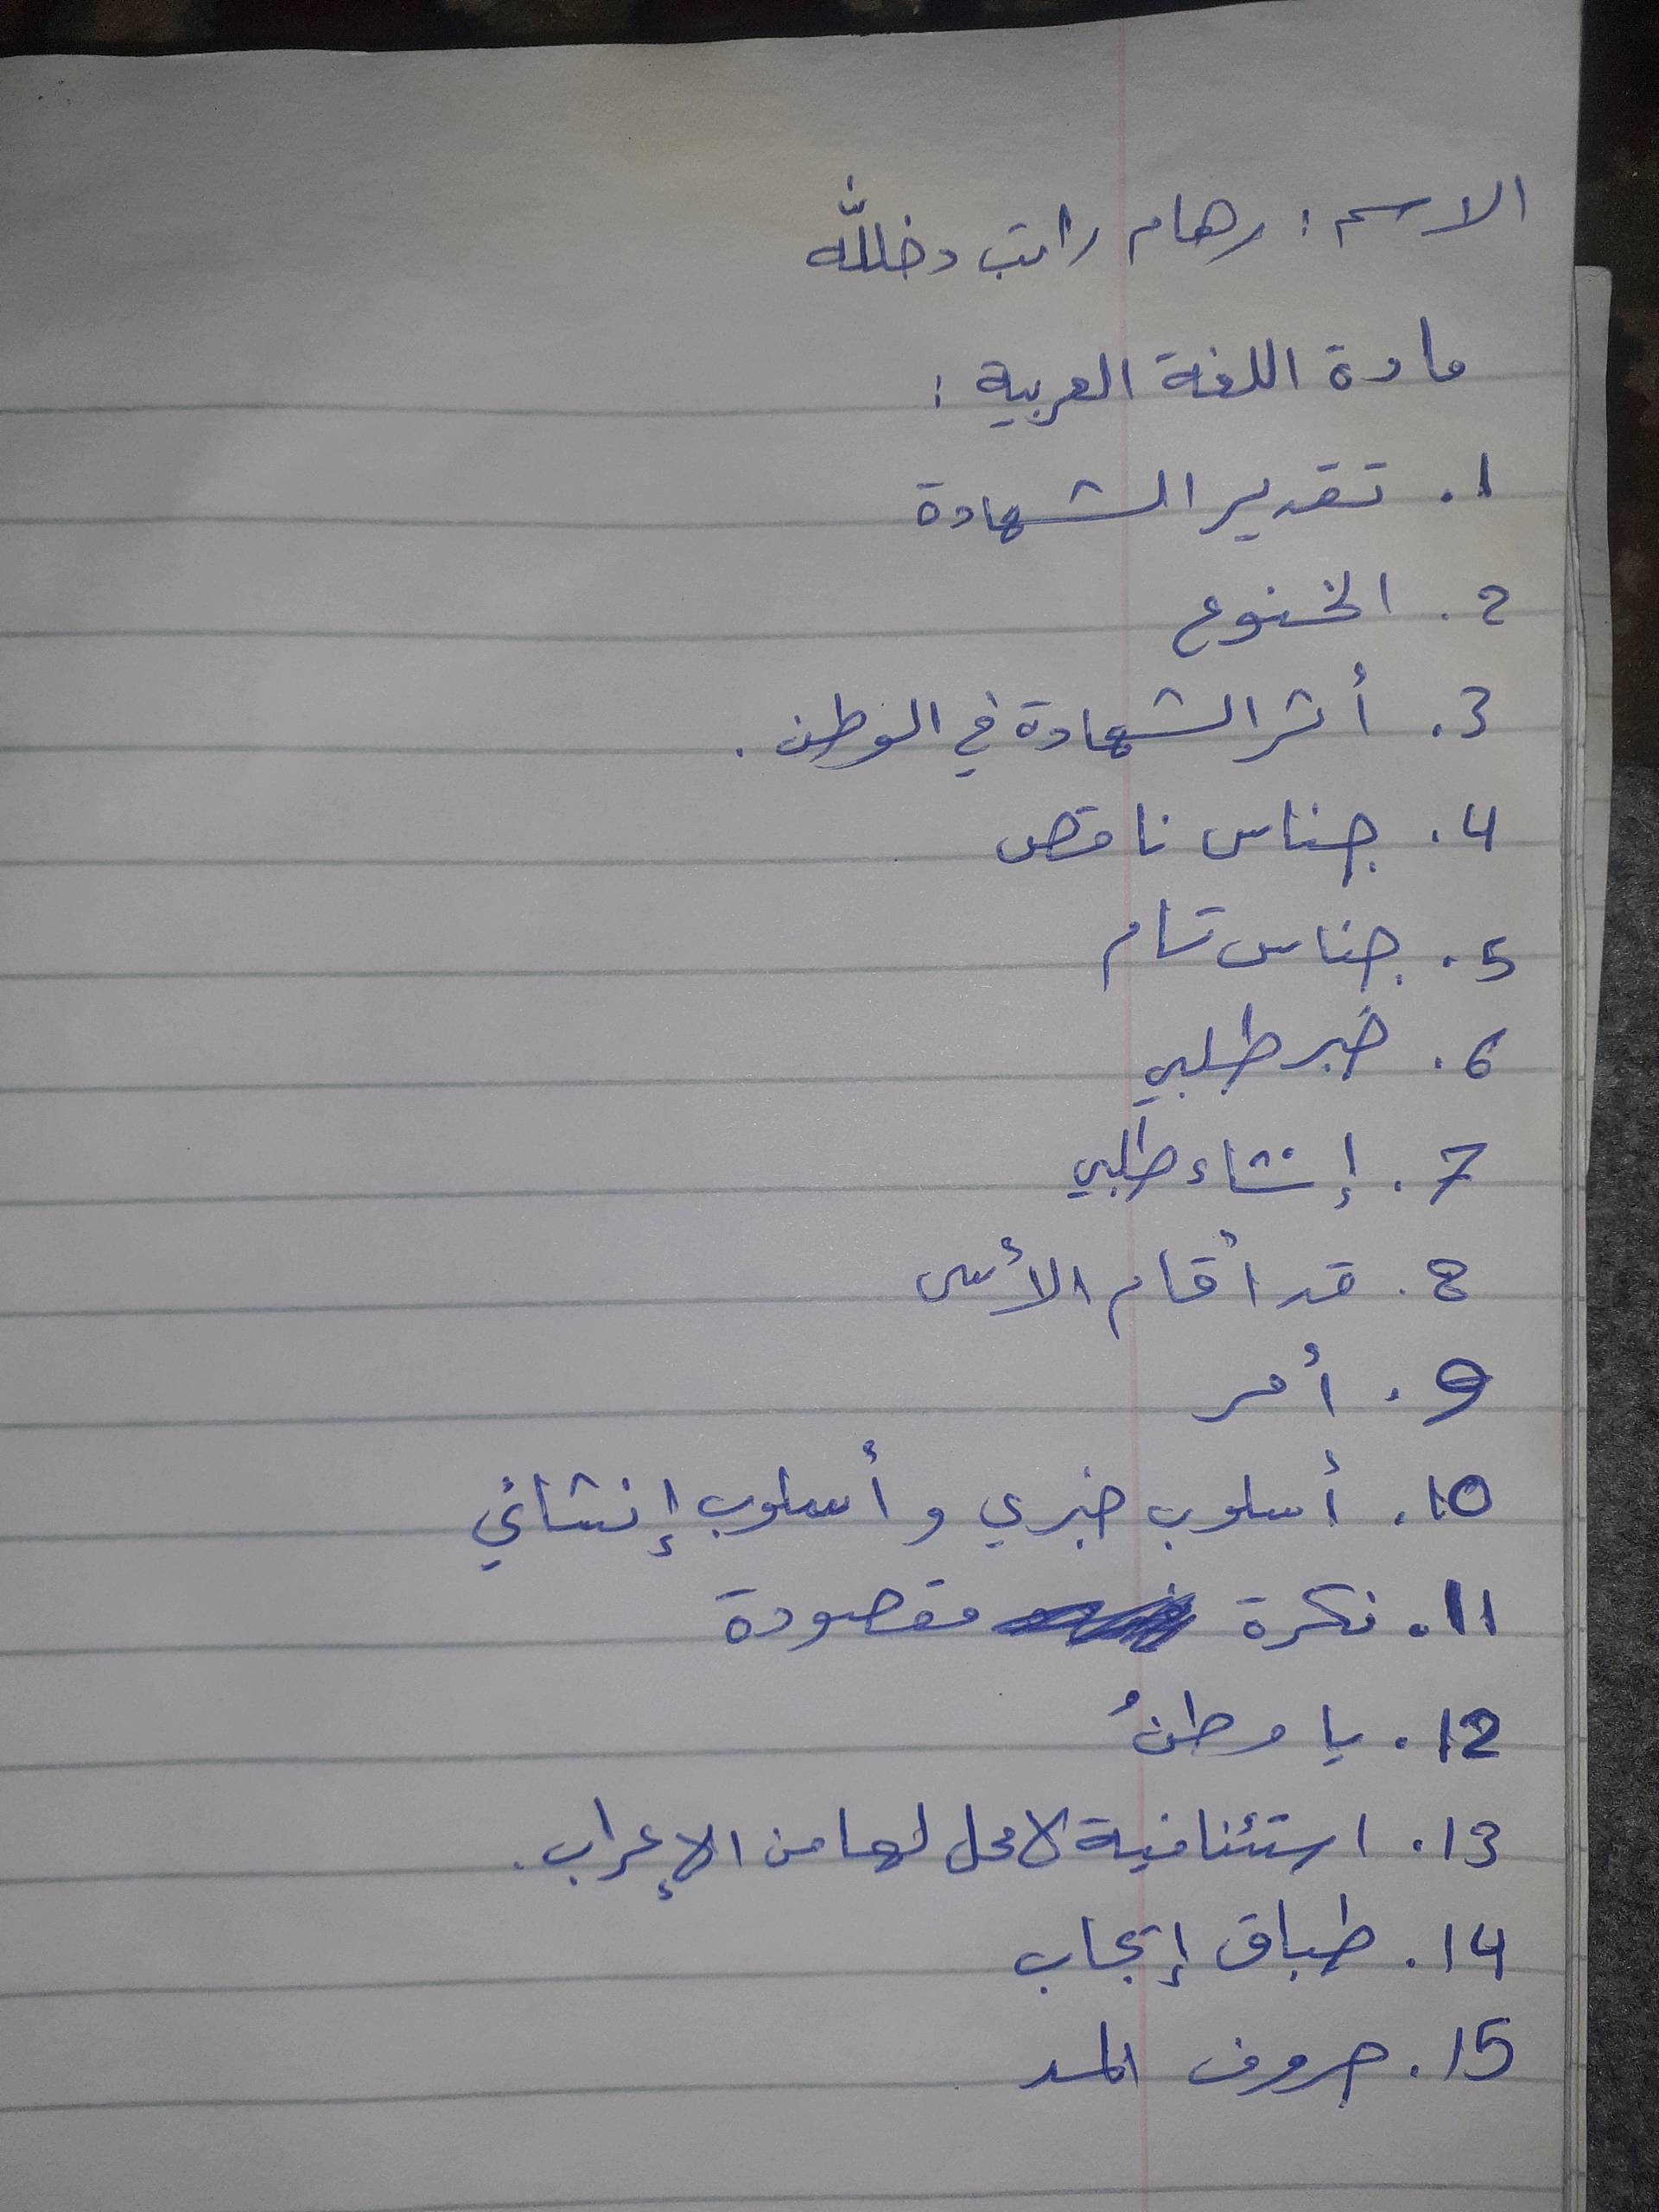 الاسم : رهام راتب دخللّه
مادة اللغة العربية :
1. تقدير الشهادة
2. الخنوع
3. أثر الشهادة في الوطن .
4. جناس ناقص
5. جناس تام
6. خبر طلبي
7. إنشاء طلبي
8. قد أقام الأسى
9. أمر
10. أسلوب خبري و أسلوب إنشائي
11. نكرة مقصودة
12. يا وطنُ
13. استئنافية لا محل لها من الإعراب .
14. طباق إيجاب
15. حروف المد